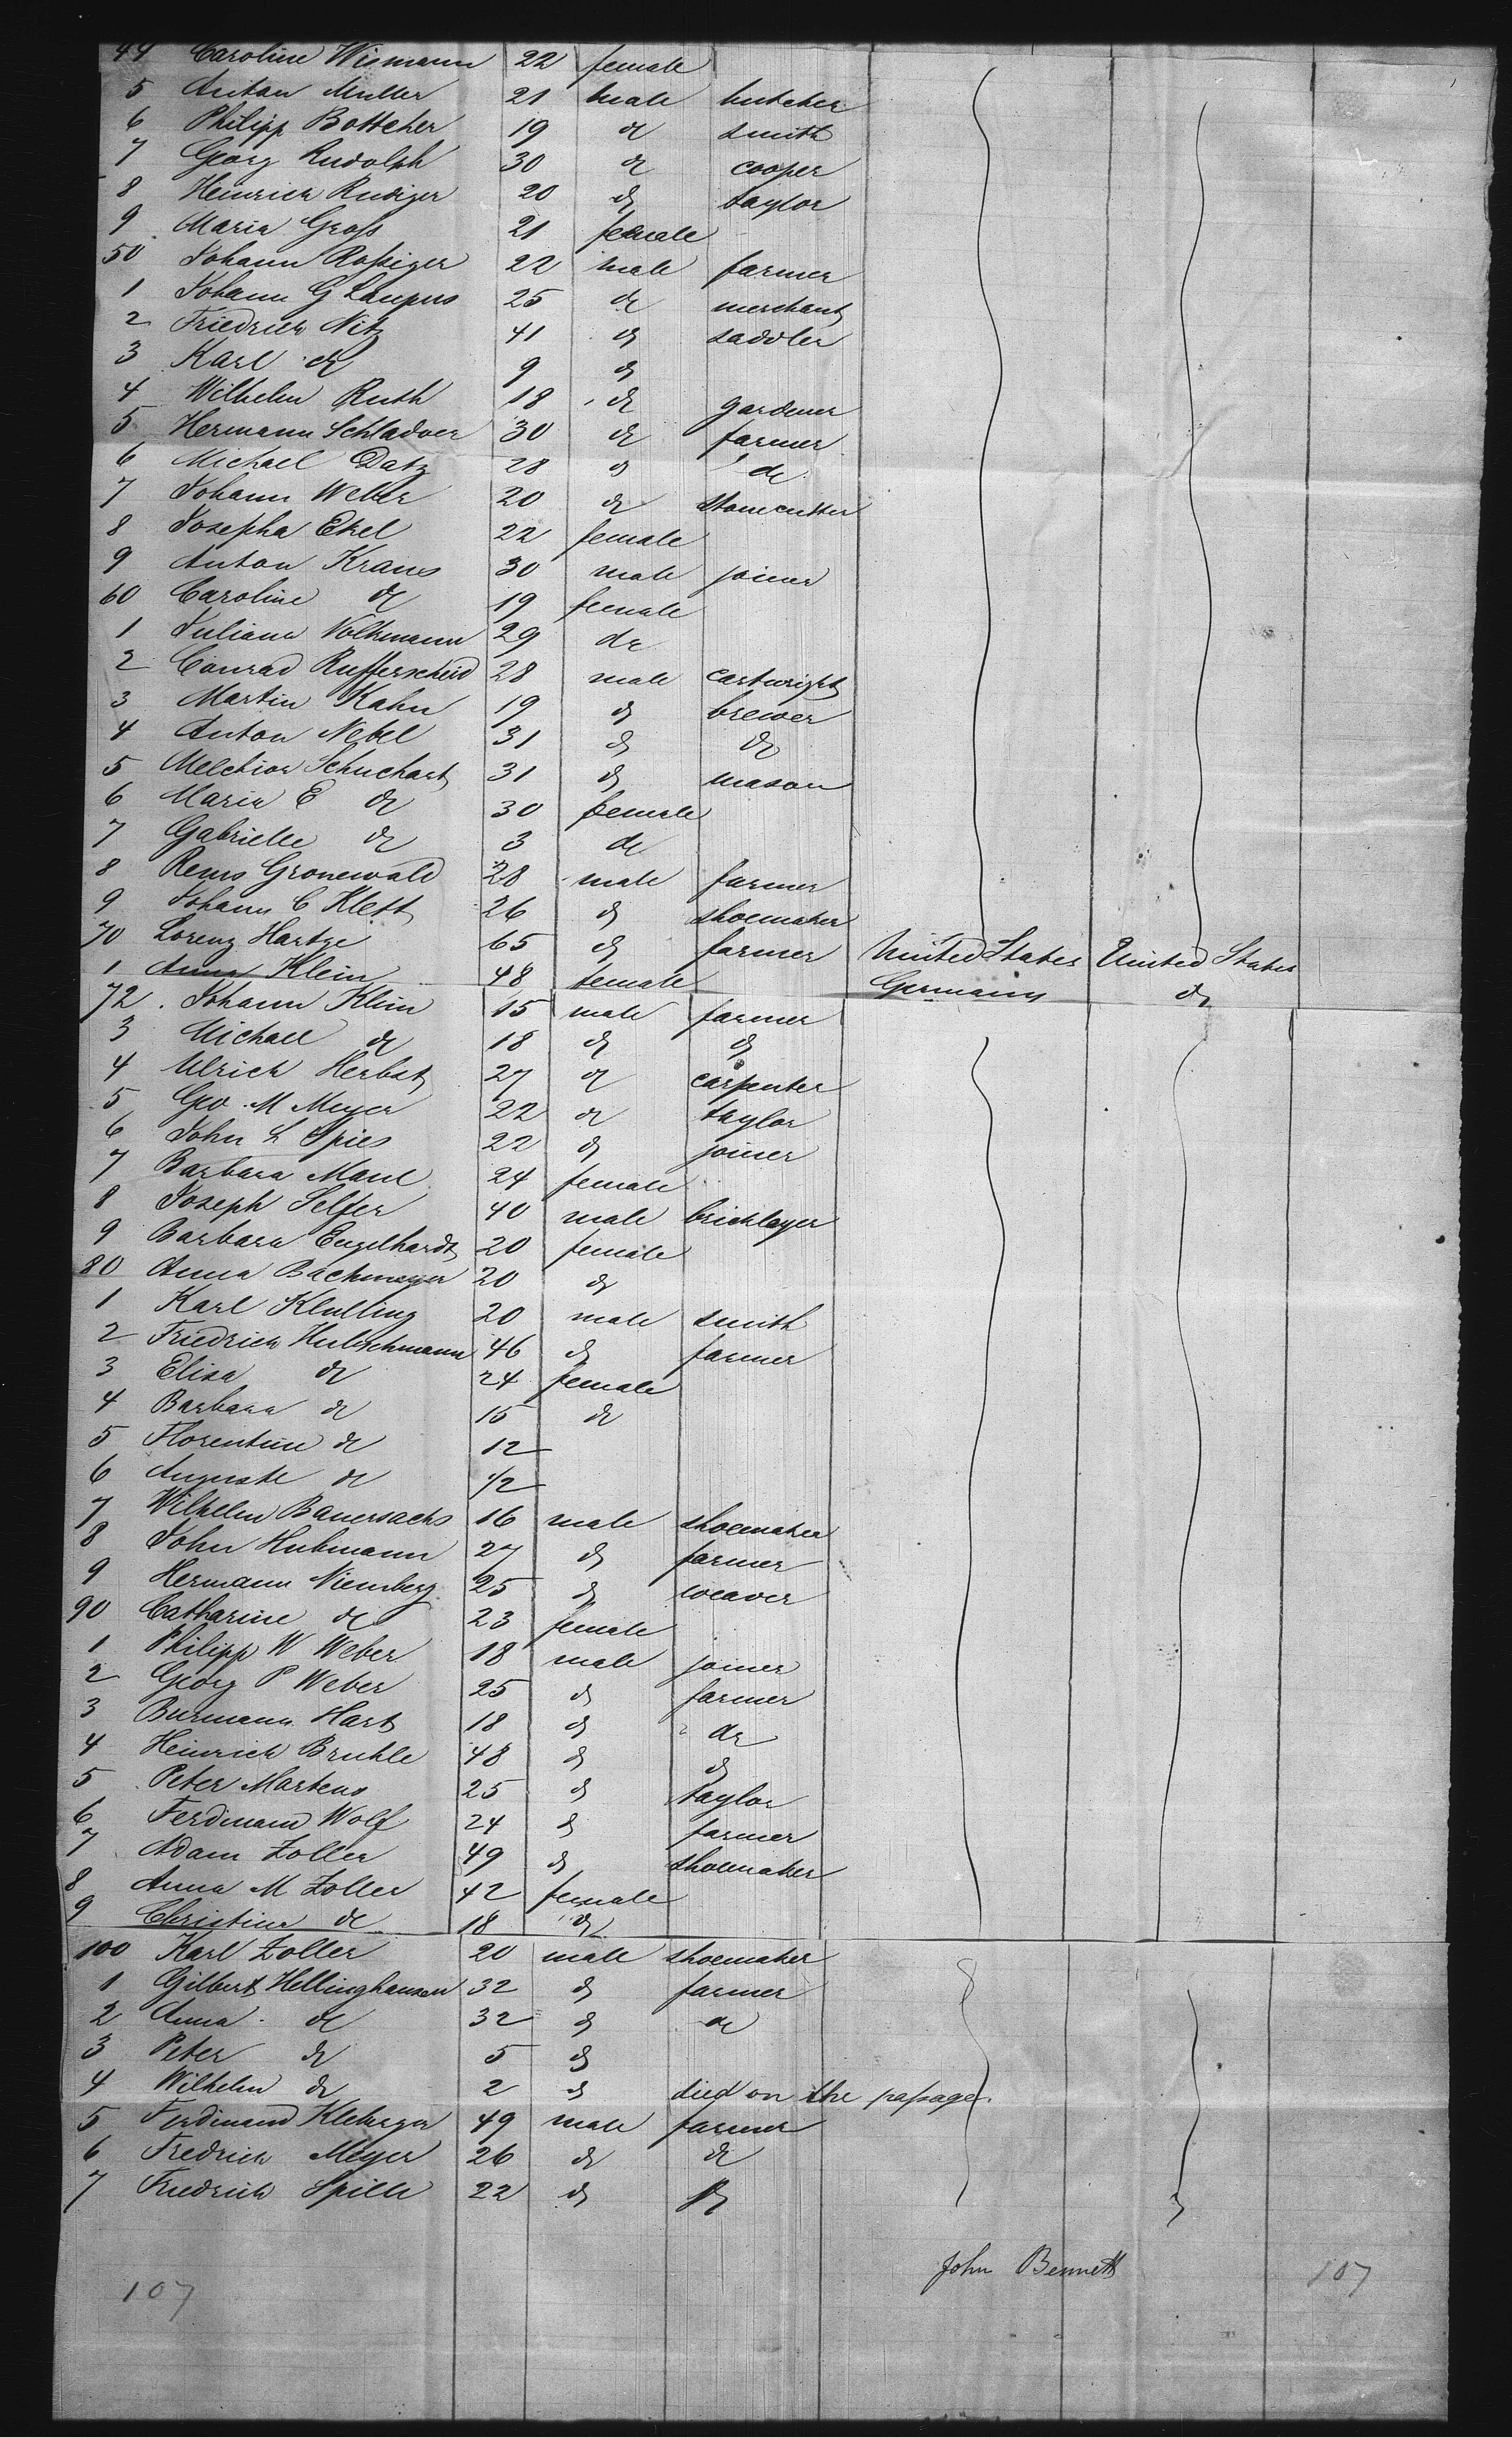 44 Caroline Wismann 22 female
5 Anton Muller 21 male butcher
6 Philipp Bottcher 19 do smith
7 Georg Rudolph 30 do cooper
8 Heinrich Rudiger 20 do taylor
9 Maria Groſs 21 female
50 Johann Roſsiger 22 male farmer
1 Johann G Laupus 25 do merchant
2 Friedrich Nitz 41 do saddler
3 Karl do 9 do
4 Wilhelm Ruth 18 do gardener
5 Hermann Schladoer 30 do farmer
6 Michael Datz 28 do do
7 Johann Weber 20 do stonecutter
8 Josepha Ekel 22 female
9 Anton Kraus 30 male joiner
60 Caroline do 19 female
1 Juliana Volkmann 29 do
2 Conrad Rufferscheid 28 male cartwright
3 Martin Kahn 19 do brewer
4 Anton Nebel 31 do do
5 Melchior Schuchart 31 do mason
6 Maria E do 30 female
7 Gabrielle do 3 do
8 Rems Gronewald 28 male farmer
9 Johann C Klett 26 do shoemaker
70 Lorenz Hartge 65 do farmer United States United States
1 Anna Klein 48 female Germany do
72 Johann Klein 15 male farmer
3 Michael do 18 do do
4 Ulrich Herbst 27 do carpenter
5 Geo M Meyer 22 do taylor
6 John L Spies 22 do joiner
7 Barbara Maul 24 female
8 Joseph Selfer 40 male bricklayer
9 Barbara Engelhardt 20 female
80 Anna Bachmeyer 20 do
1 Karl Klulling 20 male smith
2 Friedrich Hubschmann 46 do farmer
3 Elisa do 24 female
4 Barbara do 15 do
5 Florentine do 12
6 Auguste do 1/2
7 Wilhelm Bauersachs 16 male shoemaker
8 John Hubmann 27 do farmer
9 Hermann Niemberg 25 do weaver
90 Catharine do 23 female
1 Philipp W Weber 18 male joiner
2 Georg P Weber 25 do farmer
3 Burmann Hart 18 do do
4 Heinrich Bruhle 48 do do
5 Peter Martens 25 do taylor
6 Ferdinand Wolf 24 do farmer
7 Adam Zoller 49 do shoemaker
8 Anna M Zoller 42 female
9 Christina do 18 do
100 Karl Zoller 20 male shoemaker
1 Gilbert Hellinghausen 32 do farmer
2 Anna do 32 do do
3 Peter do 5 do
4 Wilhelm do 2 do died on the paſsage.
5 Ferdinand Kleberger 49 male farmer
6 Fredrich Meyer 26 do do
7 Friedrich Spille 22 do do
John Bennett
107 107